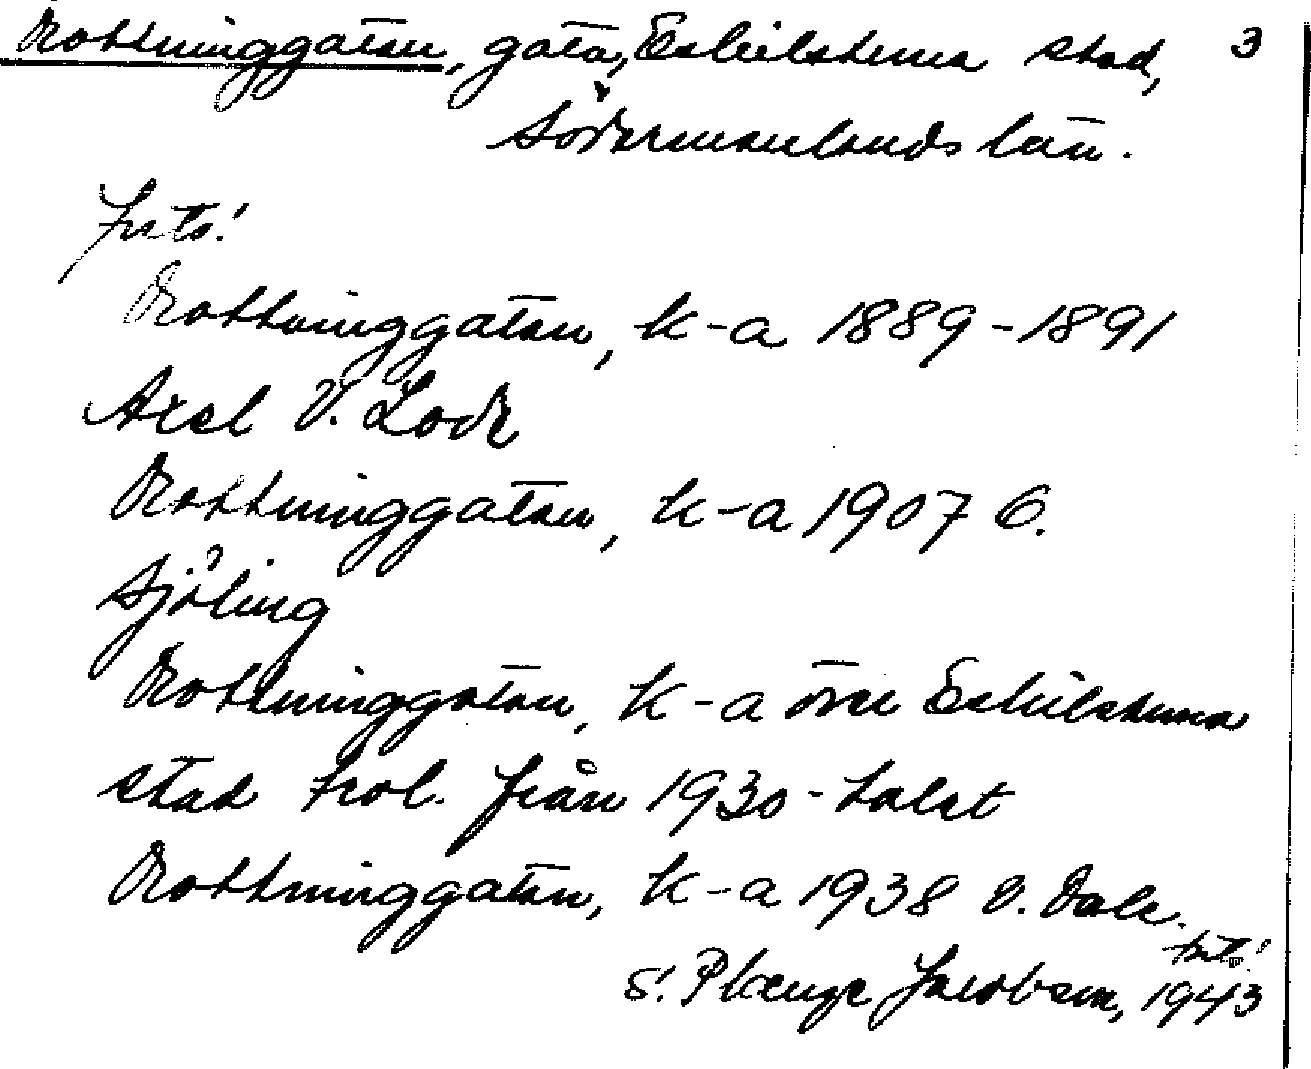 Drottninggatan, gata, Eskilstuna stad, 3
Södermanlands län.
Foto:
Drottninggatan, k-a 1889-1891
Axel V. Lode
Drottninggatan, k-a 1907 G.
Sjöling
Drottninggatan, k-a över Eskilstuna
stad trol. från 1930-talet
Drottninggatan, k-a 1938 O. Dale.
foto:
S. Plænge Jacobson, 1943